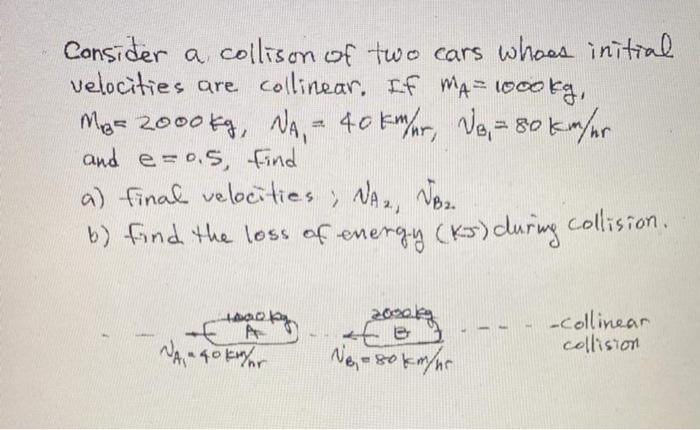 Consider a collison of two cars whoes initial
velocities are collinear. If mA = 1000 kg,
MB = 2000 kg, VA1 = 40 km/hr, VB1 = 80 km/hr
and e = 0.5, find
a) final velocities ; VA2, VB2.
b) find the loss of energy (KJ) during collision.
1000 kg 2000 kg
A B - collinear
VA1 = 40 km/hr VB1 = 80 km/hr collision